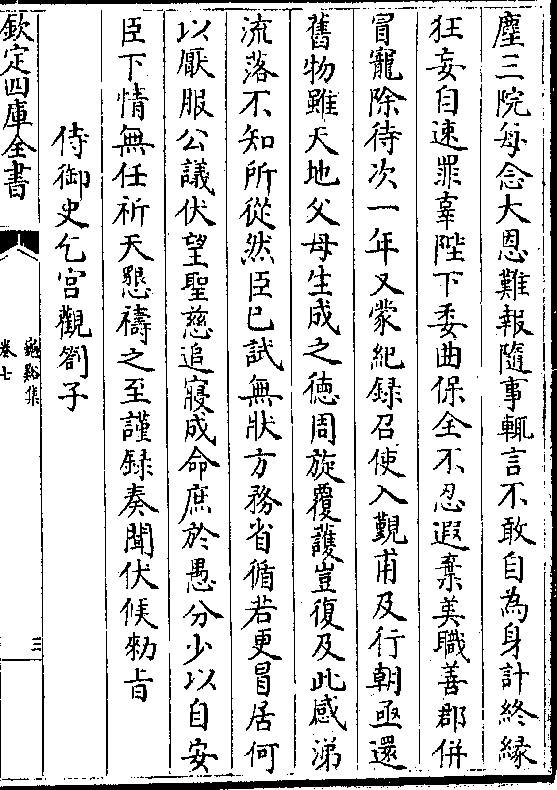 塵三院每念大恩難報隨事輒言不敢自為身計終緣
狂妄自速罪辜陛下委曲保全不忍遐棄美職善郡併
冒寵除待次一年又蒙紀録召使入覲甫及行朝亟還
舊物雖天地父母生成之徳周旋覆護豈復及此感涕
流落不知所從然臣已試無狀方務省循若更冒居何
以厭服公議伏望聖慈追寢成命庶於愚分少以自安
臣下情無任祈天懇禱之至謹録奏聞伏候勅㫖
侍御史乞宫觀劄子
欽定四庫全書
龜谿集
卷七
三